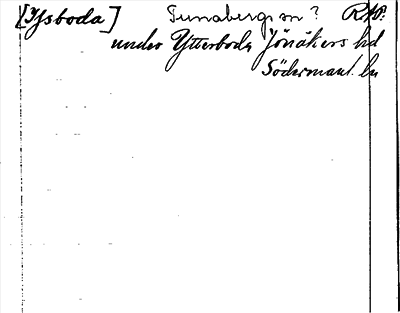 [Ysboda] Tunabergs sn? R.10:
under Ytterboda Jönåkers hd
Södermanl. ln